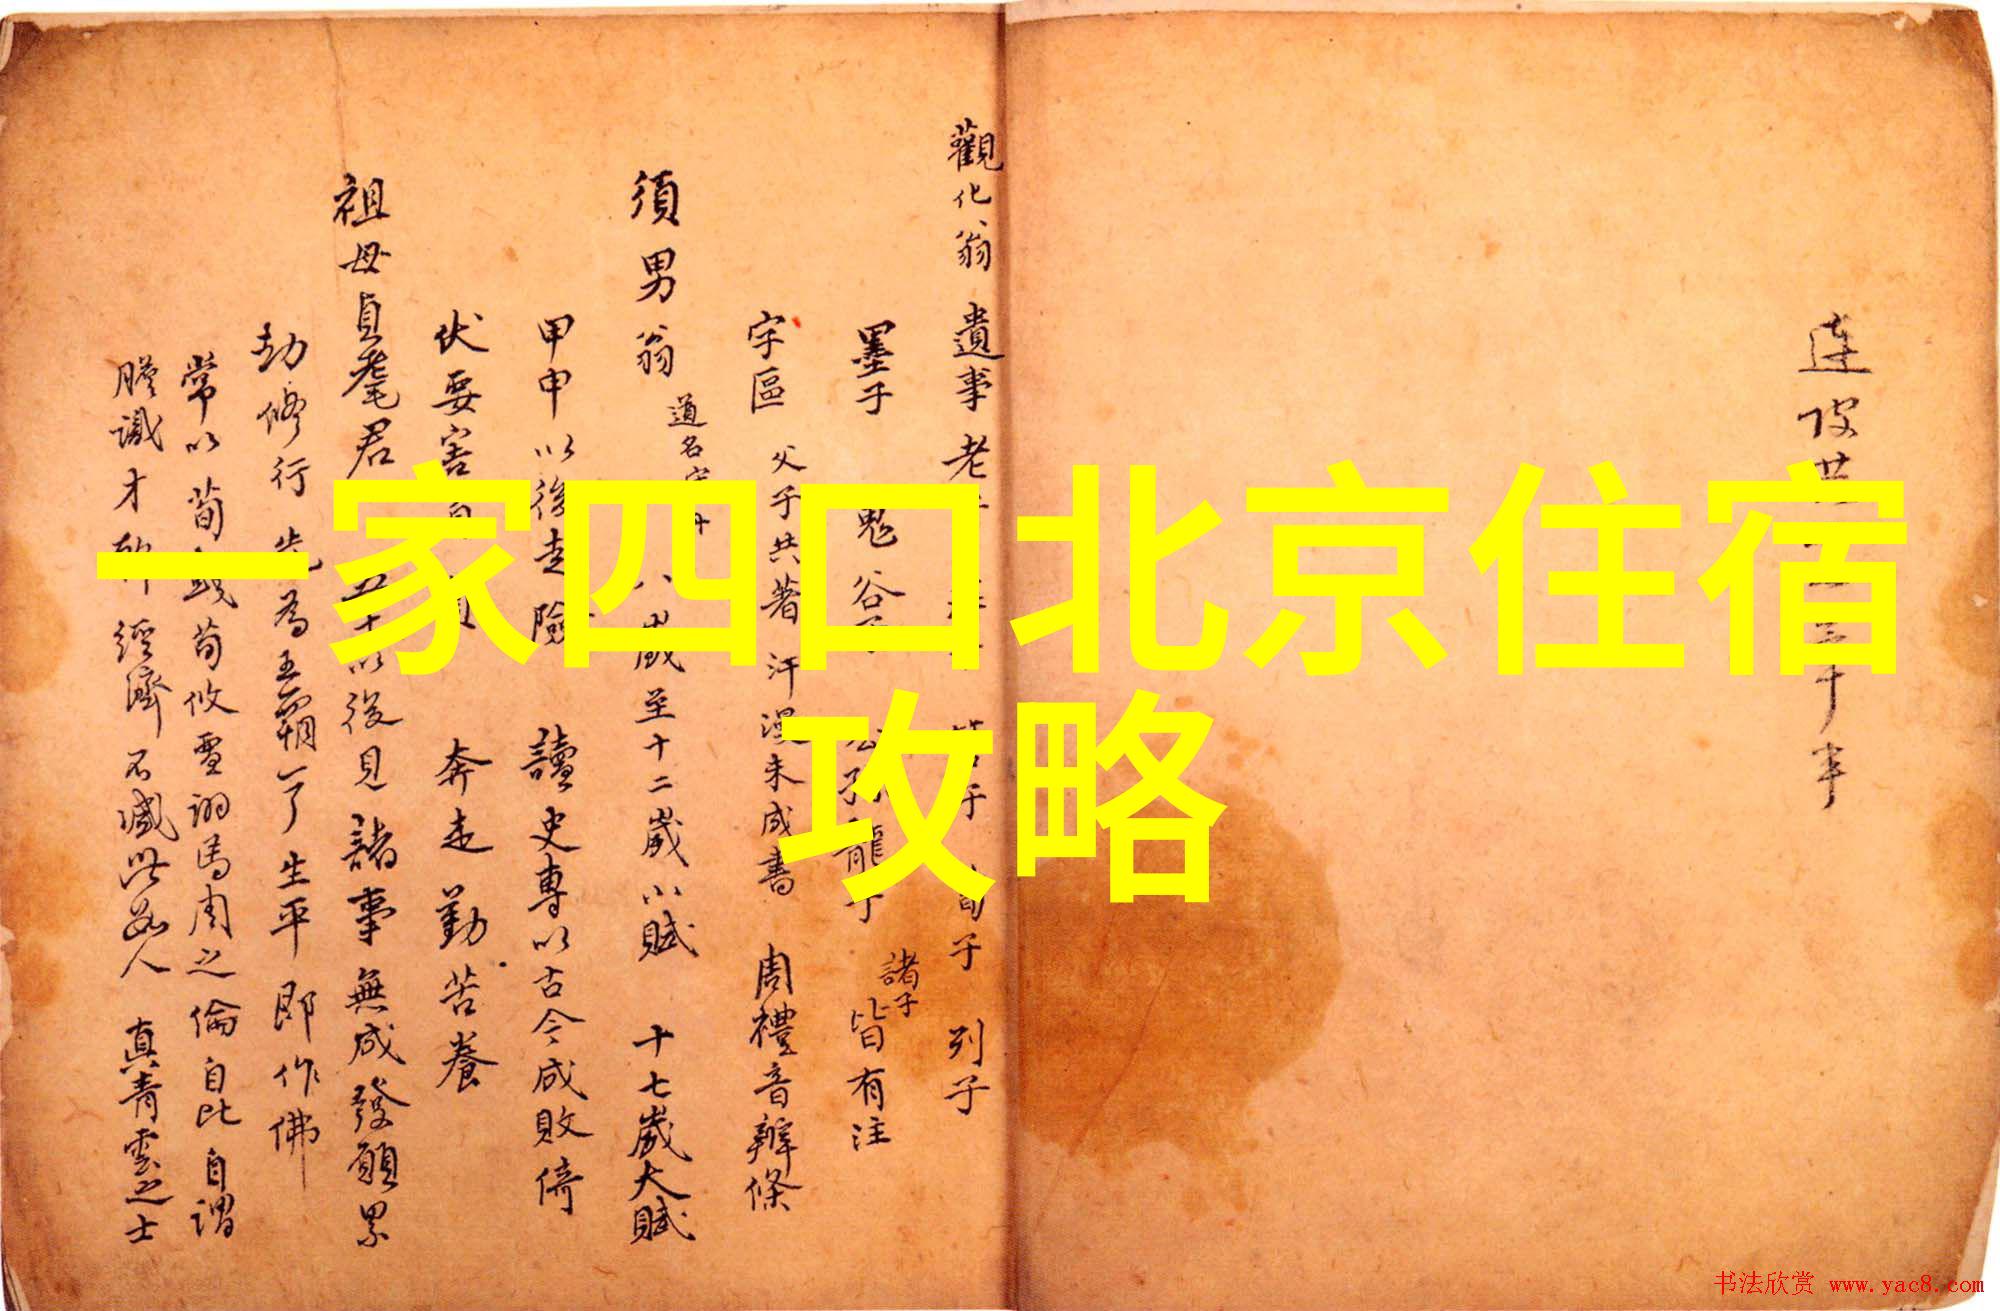 一家四口北京住宿
攻略
連
觀化翁 遺事 老子
列子
墨子
諸子
皆有注
字區 父子共著 汗漫未成書 周禮音辨條
須男翁
道名
八歲至十二歲小賦 十七歲大賦
甲申以後走險 讀史專以古今成敗倚
伏要害 奔走勤苦養
祖母貞髦君 五十以後見諸事無成發願累
劫修行先為五霸了生平即作佛
常以荀彧荀攸 馬周之倫自比自謂
膽識才 經濟不減此數人 真青雲之士
书法欣赏 www.yac8.com